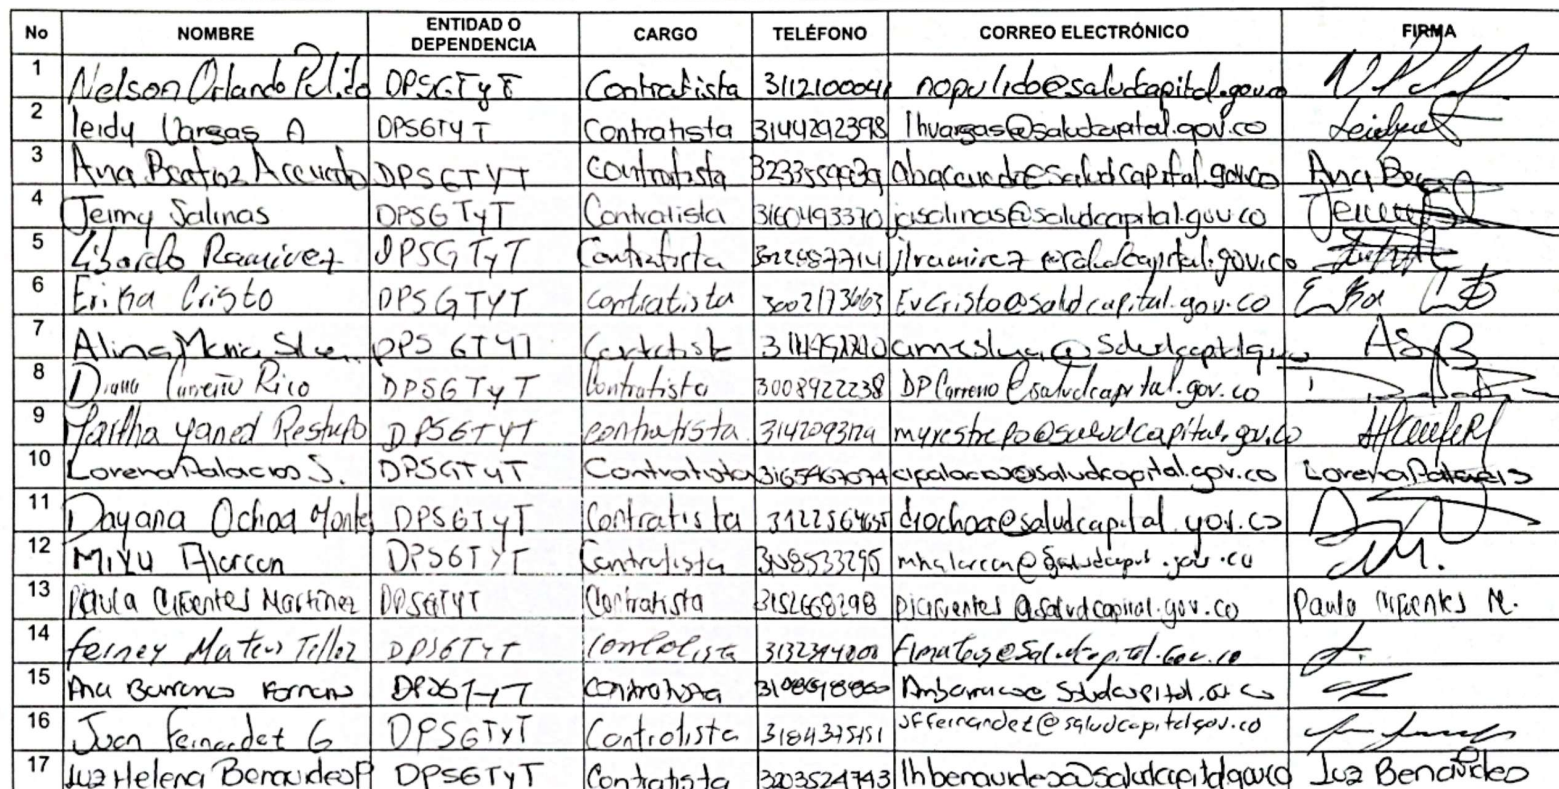 No NOMBRE ENTIDAD O DEPENDENCIA CARGO TELÉFONO CORREO ELECTRÓNICO FIRMA
1 Nelson Orlando Pulido DPSGTyT Contratista 3112100041 nopulido@saludcapital.gov.co
2 leidy Vargas A DPSGTYT Contratista 3144292398 lhvargas@saludcapital.gov.co
3 Ana Beatriz Acevedo DPSGTYT Contratista abacevedo@saludcapital.gov.co Ana Bea
4 Jeimy Salinas DPSGTyT Contratista 3160493370 jasalinas@saludcapital.gov.co
5 Libardo Ramirez DPSGTyT Contratista jlramirez@saludcapital.gov.co
6 Erika Cristo DPSGTYT contratista 3002173663 EvCristo@saludcapital.gov.co
7 Alina Maria DPSGTYT Contratista ASB
8 Diana Carreño Rico DPSGTYT Contratista 3008922238 DPCarreno@saludcapital.gov.co
9 Martha yaned Restrepo DPSGTYT contratista myrestrepo@saludcapital.gov.co
10 Lorena Palacios S. DPSGTYT Contratista 3165467074 clpalacios@saludcapital.gov.co Lorena Palacios
11 Dayana Ochoa DPSGTyT Contratista diochoa@saludcapital.gov.co
12 Alarcon DPSGTYT Contratista mhalarcon@
13 Paula Cifuentes Martinez DPSGTYT Contratista 3152668298 pjcifuentes@saludcapital.gov.co Paula Cifuentes M.
14 Ferney Mateus Tellez DPSGTYT
15 Ana Barranco DPSGTYT Contratista
16 Juan Fernandez G DPSGTYT Contratista 3184375151 JFfernandez@saludcapital.gov.co
17 Luz Helena Benavides P DPSGTyT Contratista 3203524793 lhbenavides@saludcapital.gov.co Luz Benavides